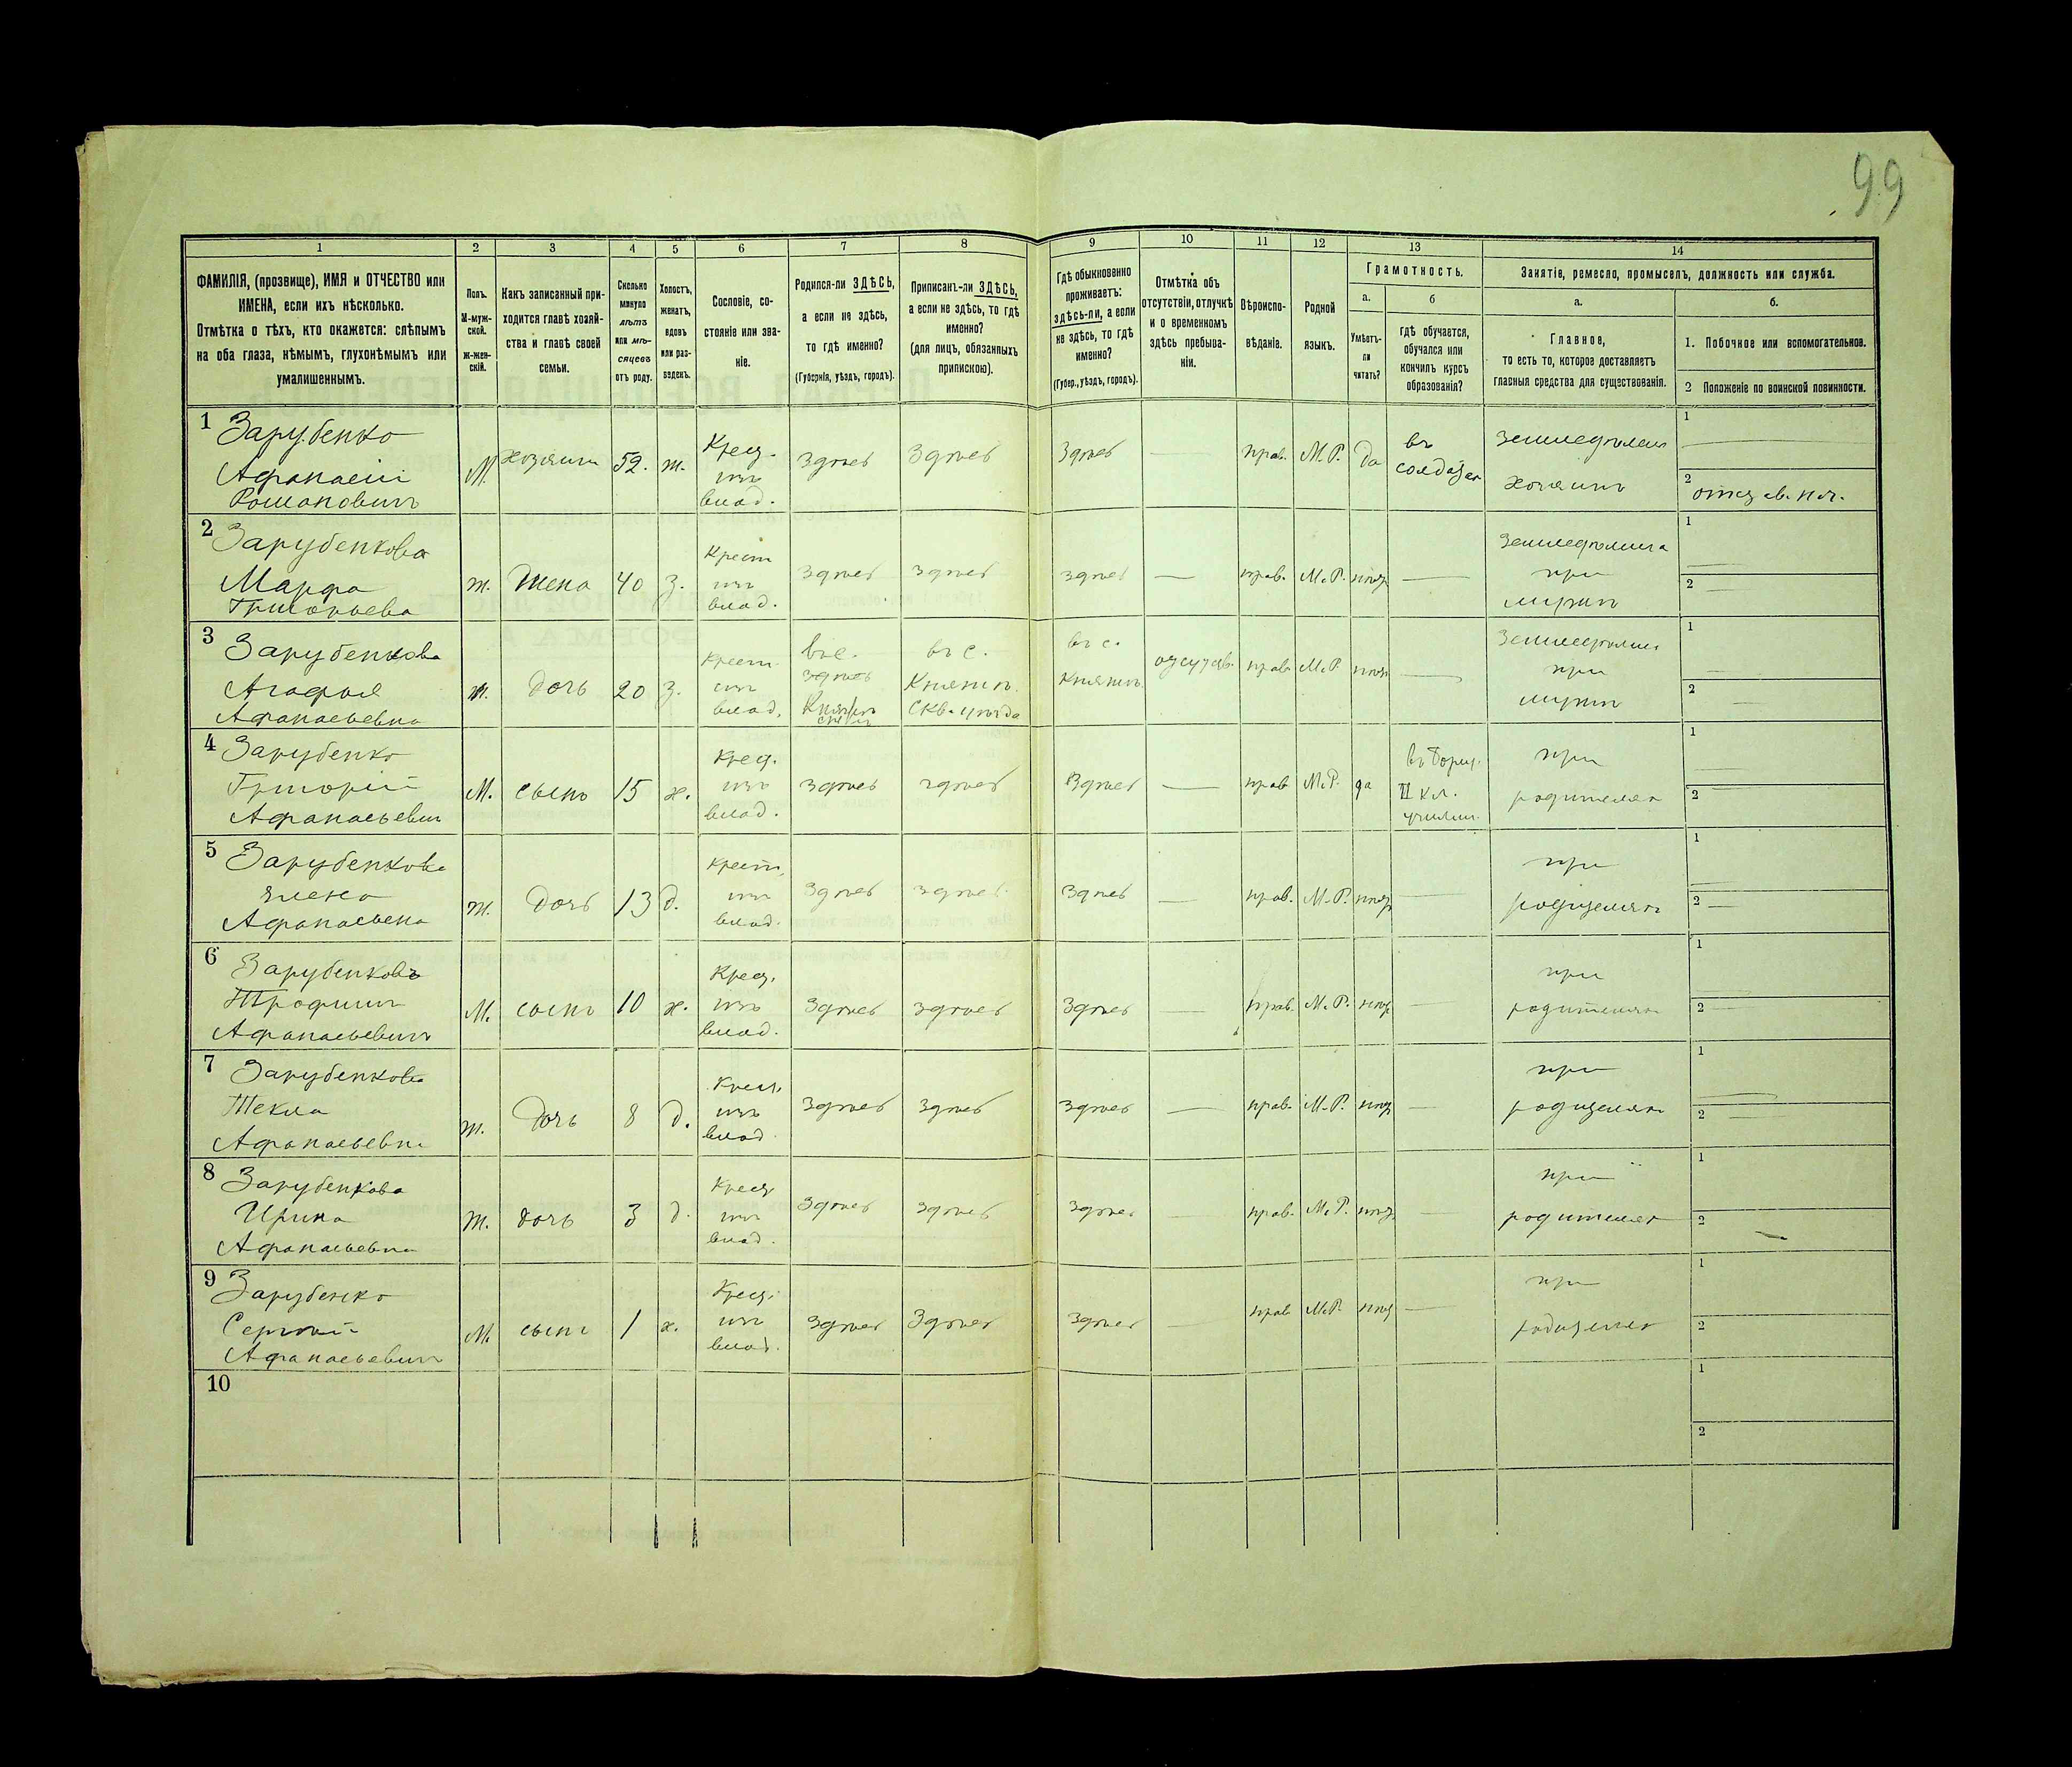 99
1 2 3 4 5 6 7 8 9 10 11 12 13 14
ФАМИЛІЯ, (прозвище), ИМЯ и ОТЧЕСТВО или
ИМЕНА, если ихъ нѣсколько.
Отмѣтка о тѣхъ, кто окажется: слѣпымъ
на оба глаза, нѣмымъ, глухонѣмымъ или
умалишеннымъ.
Полъ.
М-муж-
ской.
Ж-жен-
скій.
Какъ записанный при-
ходится главѣ хозяй-
ства и главѣ своей
семьи.
Сколько
минуло
лѣтъ
или мѣ-
сяцевъ
отъ роду.
Холостъ,
женатъ,
вдовъ
или раз-
веденъ.
Сословіе, со-
стояніе или зва-
ніе.
Родился-ли ЗДѢСЬ,
а если не здѣсь,
то гдѣ именно?
(Губернія, уѣздъ, городъ).
Приписанъ-ли ЗДѢСЬ,
а если не здѣсь, то гдѣ
именно?
(для лицъ, обязанныхъ
припискою).
Гдѣ обыкновенно
проживаетъ:
здѣсь-ли, а если
не здѣсь, то гдѣ
именно?
(Губер., уѣздъ, городъ).
Отмѣтка объ
отсутствіи, отлучкѣ
и о временномъ
здѣсь пребыва-
ніи.
Вѣроиспо-
вѣданіе.
Родной
языкъ.
Грамотность.
а.
Умѣетъ-
ли
читать?
б
гдѣ обучается,
обучался или
кончилъ курсъ
образованія?
Занятіе, ремесло, промыселъ, должность или служба.
а.
Главное,
то есть то, которое доставляетъ
главныя средства для существованія.
б.
1. Побочное или вспомогательное.
2 Положеніе по воинской повинности.
1 Зарубенко
Афанасій
Романовичъ
М. хозяинъ 52. ж.
Крест.
изъ
влад.
здѣсь здѣсь здѣсь — прав. М.Р. да
въ
солдатах
земледѣлія
хозяинъ
1
2
2 Зарубенкова
Марфа
Григорьева
ж. жена 40 з.
Крест
изъ
влад.
здѣсь здѣсь здѣсь — прав. М.Р. нѣтъ —
земледѣлія
при
мужѣ
1
2
3 Зарубенкова
Агафья
Афанасьевна
ж. дочь 20 з.
крест.
изъ
влад.
въ с.
здѣсь
въ с.
Княжик.
Скв. уѣзда
въ с.
Княжик.
отсутств. прав. М.Р. нѣтъ —
земледѣлія
при
мужѣ
1
2
4 Зарубенко
Григорій
Афанасьевич
М. сынъ 15 х.
крест.
изъ
влад.
здѣсь здѣсь здѣсь — прав. М.Р. да
II кл.
училищ.
при
родителях
1
2
5 Зарубенкова
Афанасьевна
ж. дочь 13 д.
крест.
изъ
влад.
здѣсь здѣсь здѣсь — прав. М.Р. нѣтъ —
при
родителях
1
2
6 Зарубенковъ
Трофимъ
Афанасьевичъ
М. сынъ 10 х.
Крест.
изъ
влад.
здѣсь здѣсь здѣсь — прав. М.Р. нѣтъ —
при
родителях
1
2
7 Зарубенкова
Текла
Афанасьевна
ж. дочь 8 д.
Крест.
изъ
влад.
здѣсь здѣсь здѣсь — прав. М.Р. нѣтъ —
при
родителях
1
2
8 Зарубенкова
Ирина
Афанасьевна
ж. дочь 3 д.
крест
изъ
влад.
здѣсь здѣсь здѣсь — прав. М.Р. нѣтъ —
при
родителях
1
2
9 Зарубенко
Сергѣй
Афанасьевичъ
М. сынъ 1 х.
Крест.
изъ
влад.
здѣсь здѣсь здѣсь — прав. М.Р. нѣтъ —
при
родителях
1
2
10
1
2